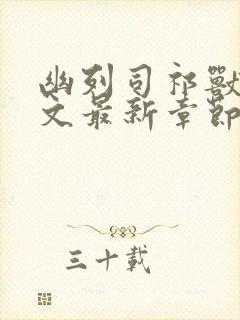 幽列司祁獸
文最新章節
三十載